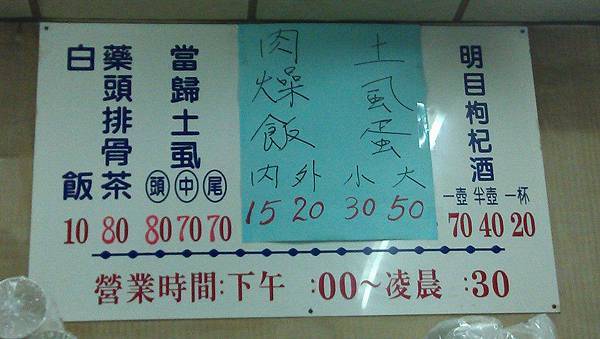 明目枸杞酒
一壺 半壺 一杯
70 40 20
土虱蛋
小 大
30 50
肉燥飯
內 外
15 20
當歸土虱
頭 中 尾
80 70 70
藥頭排骨茶
80
白飯
10
營業時間:下午 :00～凌晨 :30